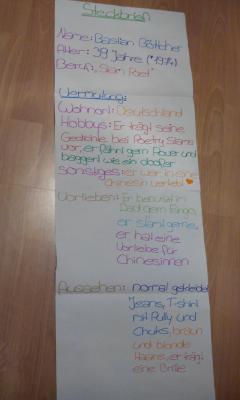 Steckbrief
Name: Bastian Böttcher
Alter: 39 Jahre (*1974)
Beruf: "Slam Poet"
Vermutung:
Wohnort: Deutschland
Hobbys: Er trägt seine
Gedichte bei Poetry Slams
vor, er fährt gern Power und
baggert wie ein großer
Sonstiges: er war in eine
Chinesin verliebt
Vorlieben: Er benutzt in
gern
er slamt gerne,
er hat eine
Vorliebe für
Chinesinnen
Aussehen: normal gekleidet
Jeans, T-shirt
mit Pulli und
Chuks, braun
und blonde
Haare, er trägt
eine Brille